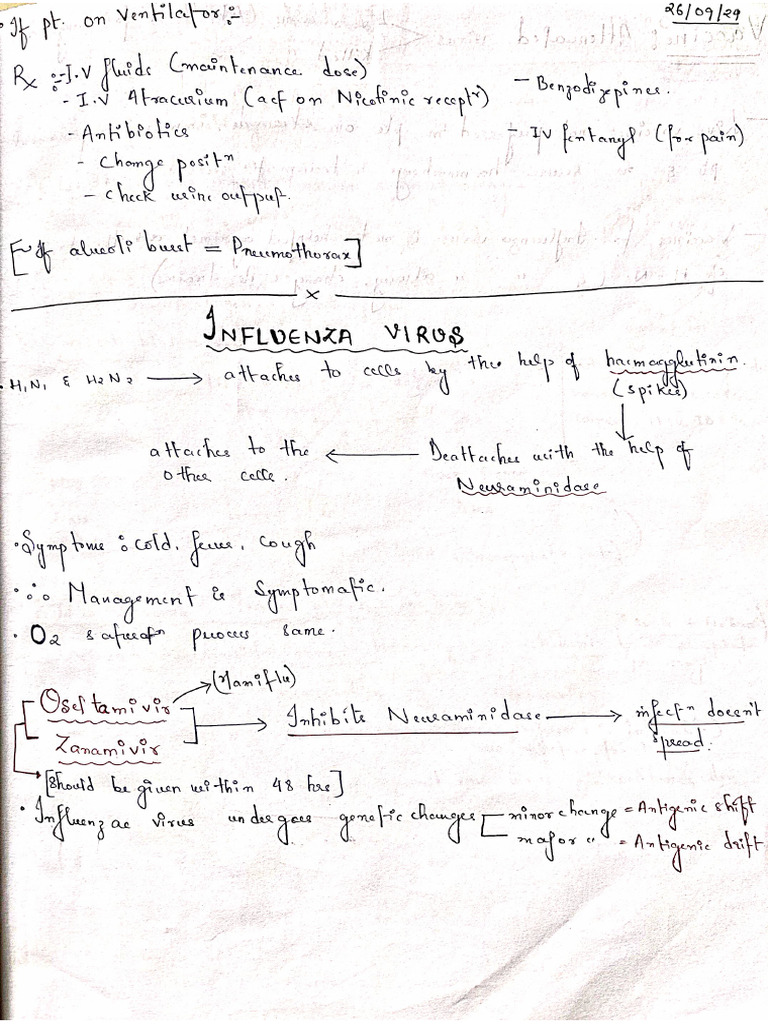 26/09/29
• If pt. on Ventilator :-
Rx :- I.V fluids (maintenance dose)
- I.V Atracurium (act on Nicotinic receptʳ)
- Benzodizepines.
- Antibiotics
- IV fentanyl (for pain)
- Change positⁿ
- Check urine output.
[~ If alveoli burst = Pneumothorax]
x
INFLUENZA VIRUS
• H₁N₁ & H₂N₂ → attaches to cells by the help of haemagglutinin.
(spikes)
attaches to the ← Deattaches with the help of
other cells.
Neuraminidase
• Symptoms : cold, fever, cough
• ∴ Management is Symptomatic.
• O₂ satuatⁿ process same.
→ (Tamiflu)
Oseltamivir
→ Inhibits Neuraminidase → infectⁿ doesn't
Zanamivir
spread.
→ [should be given within 48 hrs]
• Influenzae virus undergoes genetic changes [ minor change = Antigenic shift
major " = Antigenic drift